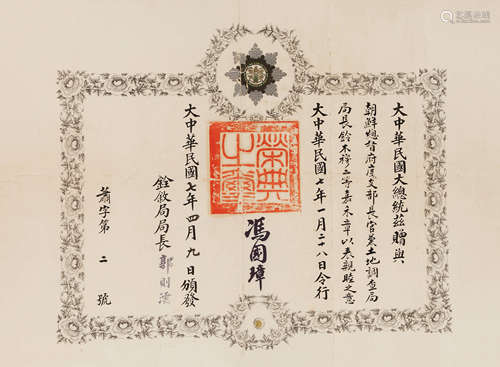 大中華民國大總統茲贈與
朝鮮總督府度支部長官兼土地調查局
局長鈴木穆二等嘉禾章以表親睦之意
大中華民國七年一月二十八日令行
榮典之璽
馮國璋
大中華民國七年四月九日頒發
銓敘局局長 郭則澐
蕭字第二號